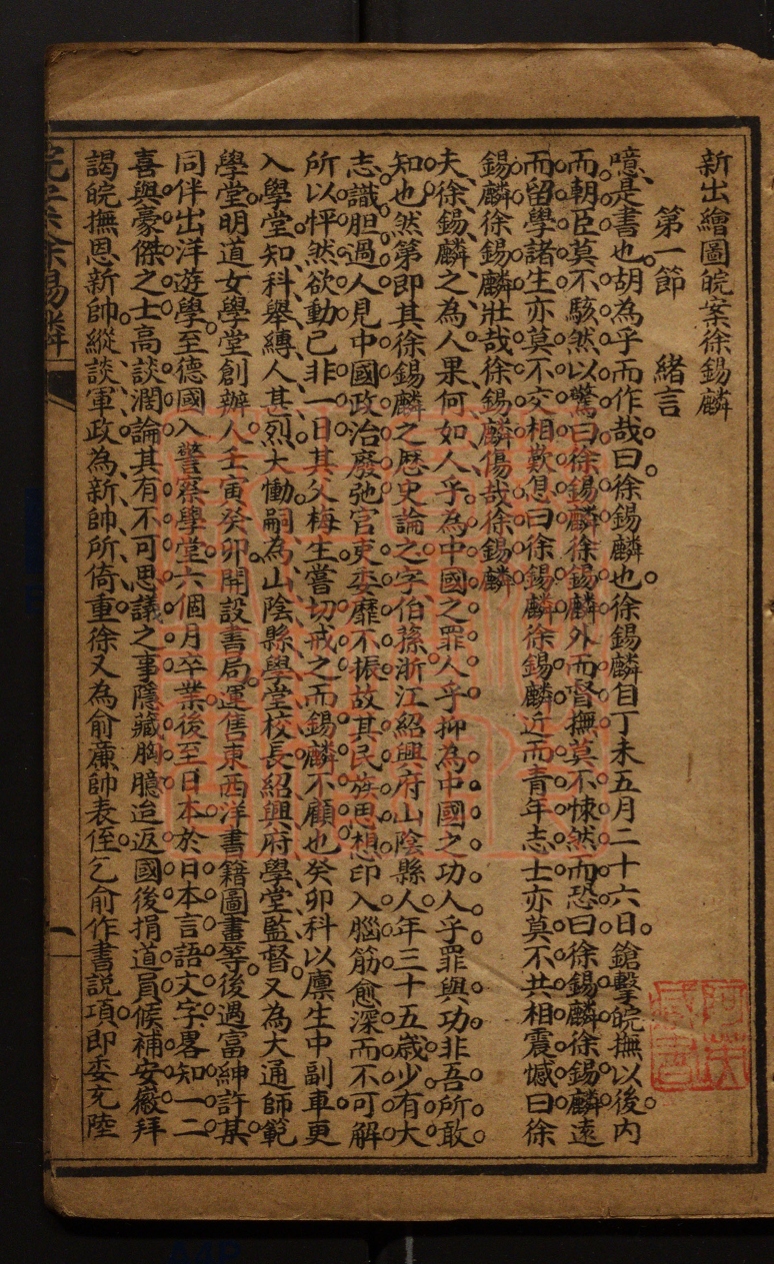 新出繪圖皖案徐錫麟
第一節　緒言
噫是書也胡為乎而作哉曰徐錫麟也徐錫麟自丁未五月二十六日鎗擊皖撫以後內
而朝臣莫不駭然以驚曰徐錫麟徐錫麟外而督撫莫不悚然而恐曰徐錫麟徐錫麟遠
而留學諸生亦莫不交相歎息曰徐錫麟徐錫麟近而青年志士亦莫不共相震憾曰徐
錫麟徐錫麟壯哉徐錫麟傷哉徐錫麟
夫徐錫麟之為人果何如人乎為中國之罪人乎抑為中國之功人乎罪與功非吾所敢
知也然第即其徐錫麟之歷史論之字伯蓀浙江紹興府山陰縣人年三十五歲少有大
志識胆過人見中國政治廢弛官吏委靡不振故其民族思想印入腦筋愈深而不可解
所以怦然欲動已非一日其父梅生嘗切戒之而錫麟不顧也癸卯科以廩生中副車更
入學堂知科舉縛人甚烈大慟嗣為山陰縣學堂校長紹興府學堂監督又為大通師範
學堂明道女學堂創辦人壬寅癸卯開設書局運售東西洋書籍圖書等後遇富紳許某
同伴出洋遊學至德國入警察學堂六個月卒業後至日本於日本言語文字畧知一二
喜與豪傑之士高談濶論其有不可思議之事隱藏胸臆迨返國後捐道員候補安徽拜
謁皖撫恩新帥縱談軍政為新帥所倚重徐又為俞廉帥表侄乞俞作書說項即委充陸
皖案徐錫麟
一